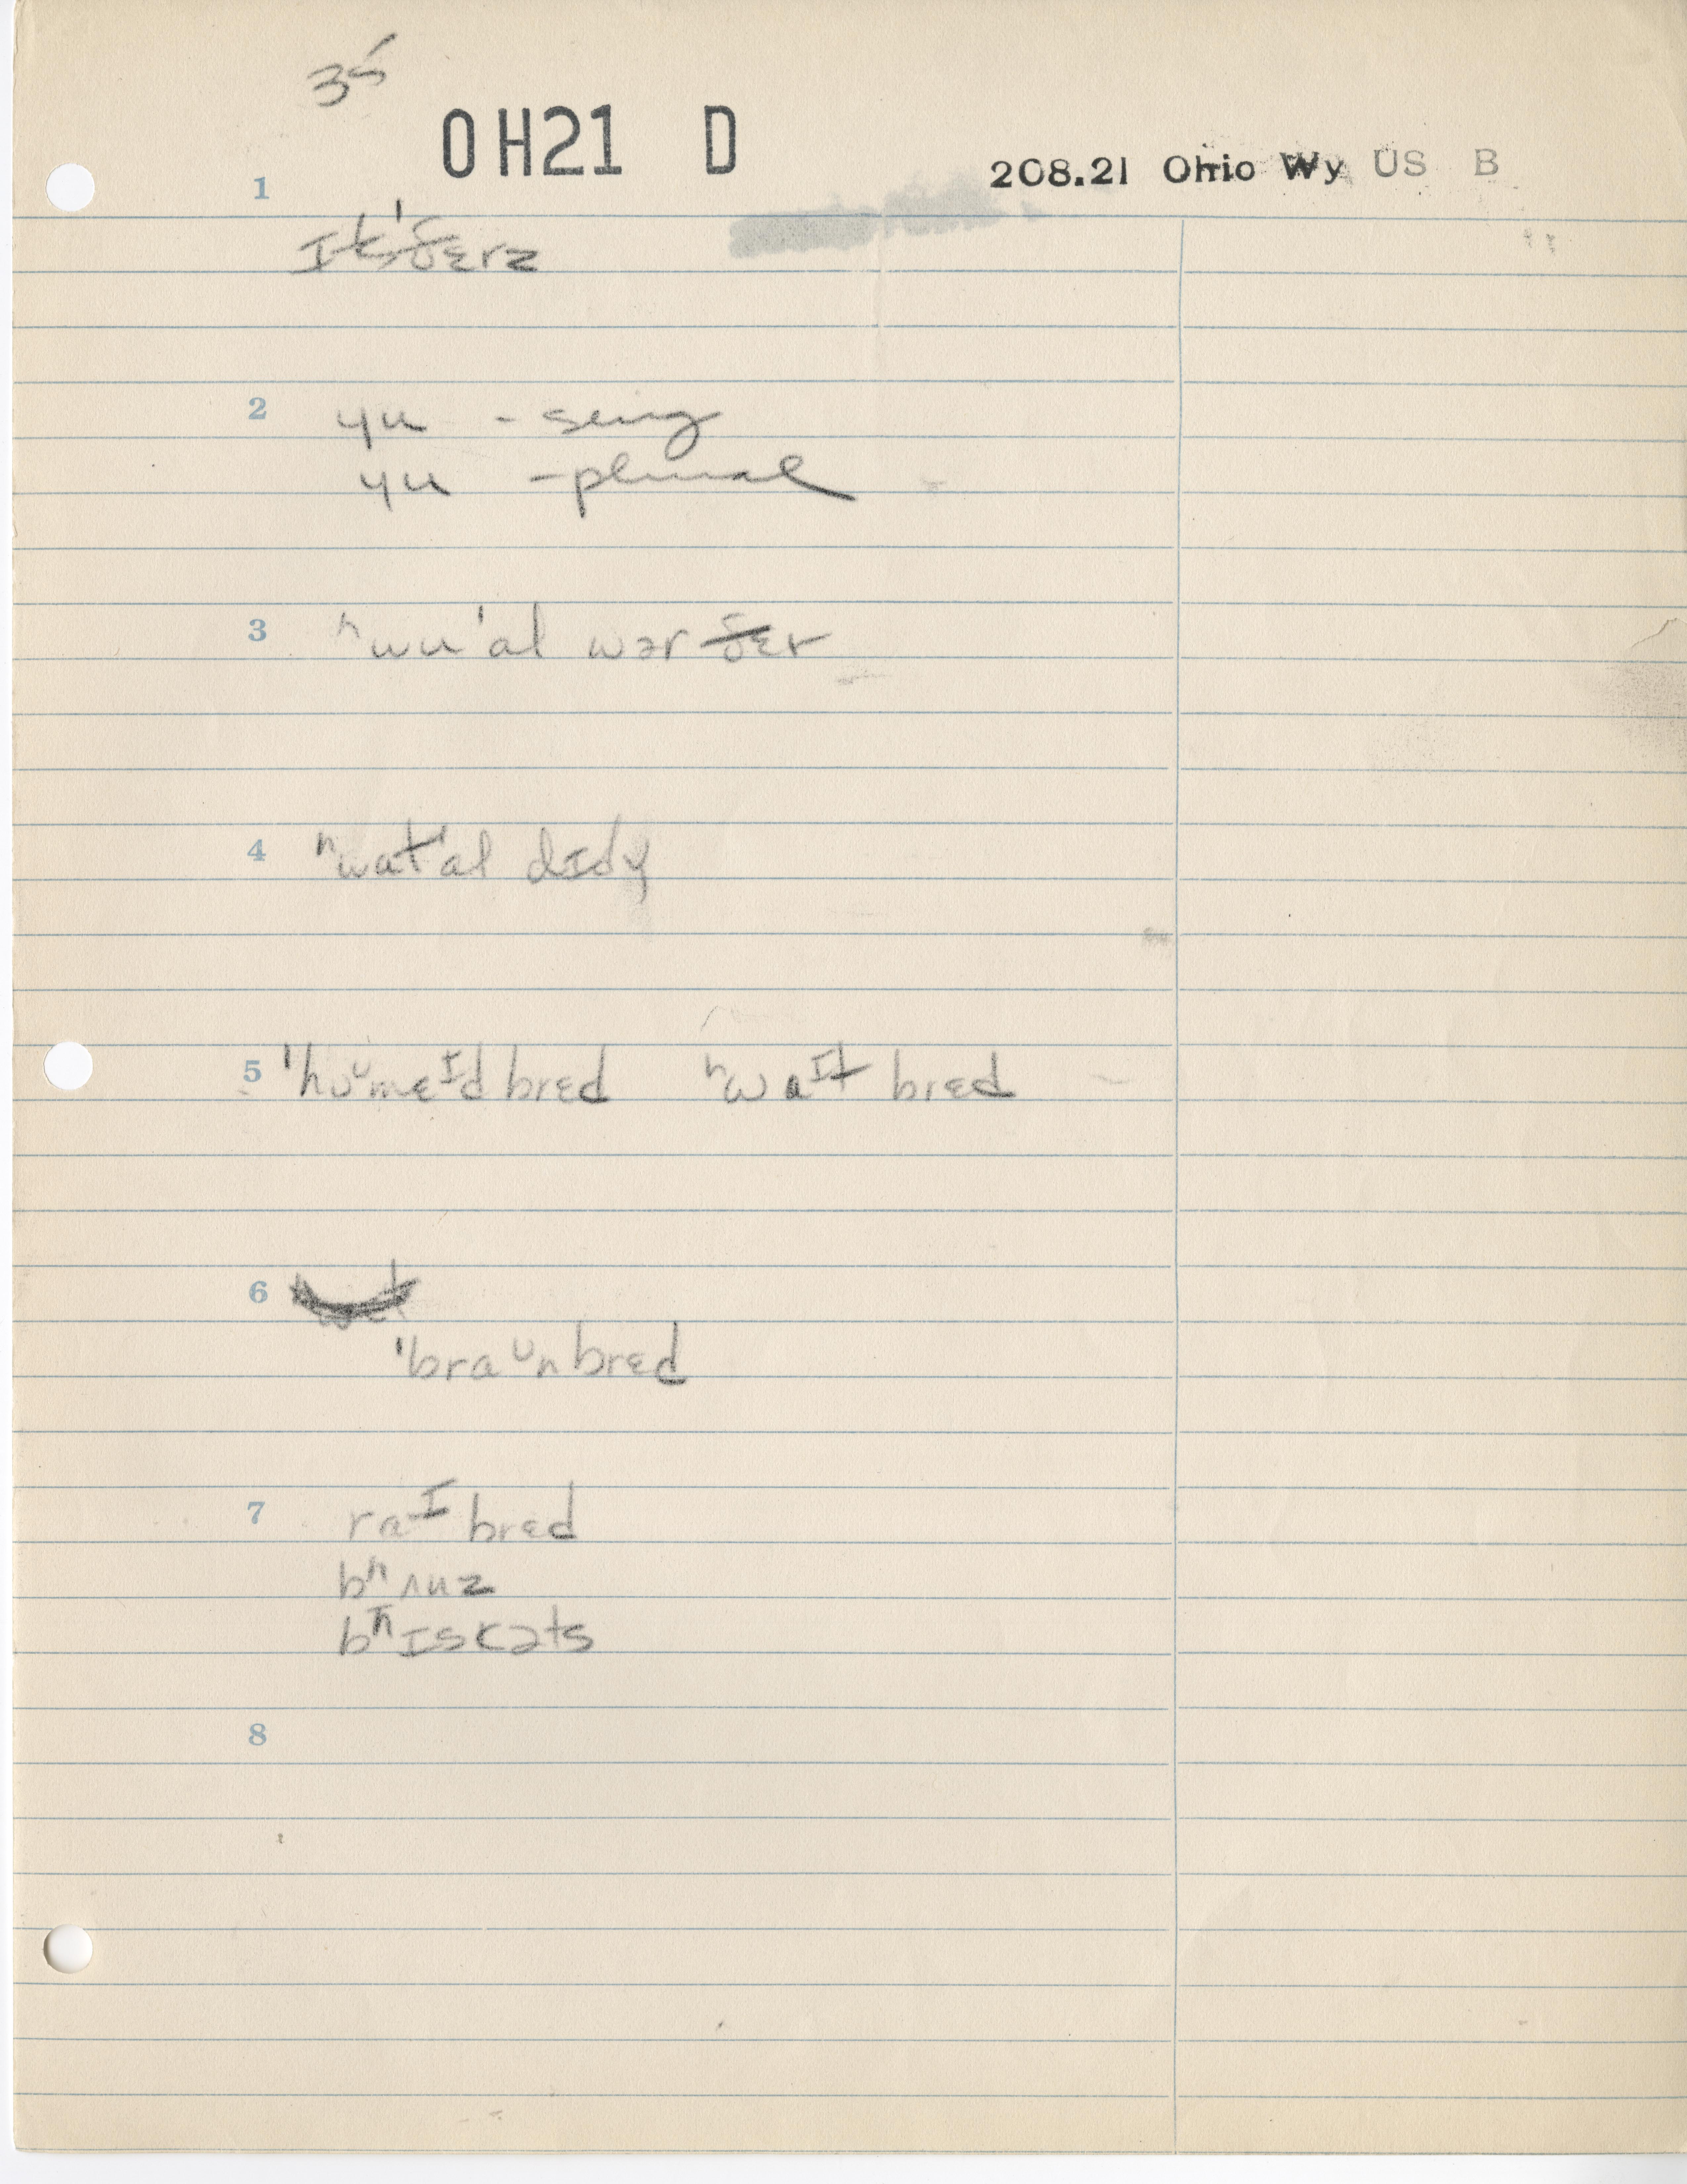 35
OH21 D
208.21 Ohio Wy US B
1
ɪts'ðɛrz
2 yu - sing
yu - plural
3 ʰwu'al wər ðɛr
4 ʰwat'al dɪdy
5 'hoᵁmeᴵd brɛd ʰwaᴵt brɛd
6
'braᵁn brɛd
7 raᴵ brɛd
bʰʌnz
bʰɪskəts
8